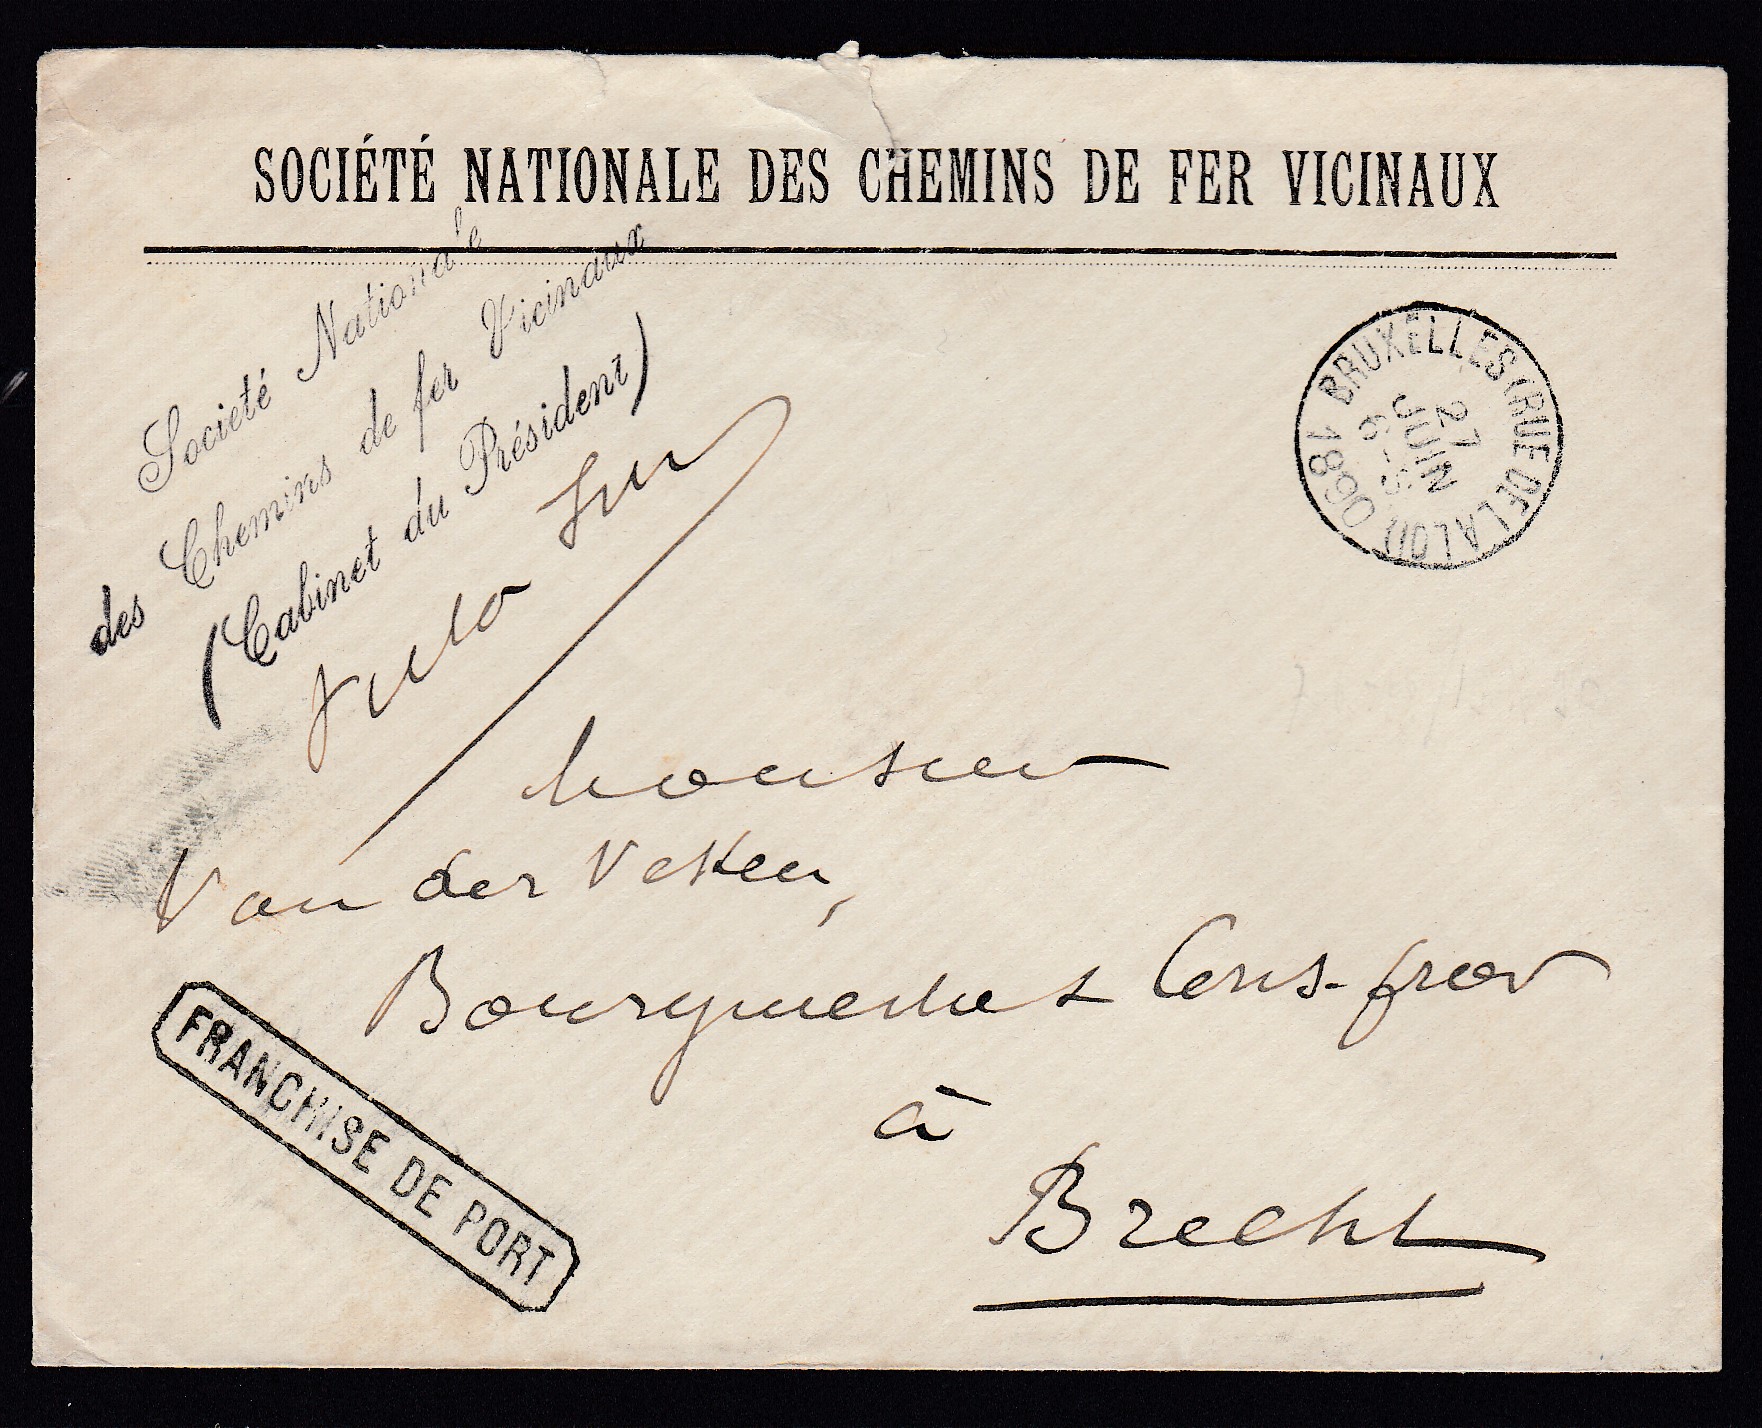 SOCIÉTÉ NATIONALE DES CHEMINS DE FER VICINAUX
Societé Nationale
des Chemins de fer Vicinaux
(Cabinet du Président)
BRUXELLES (RUE DE LA LOI)
27
JUIN
6-S
1890
Monsieur
Van der Veken,
Bourgmestre & Cons. prov
à
Brecht
FRANCHISE DE PORT